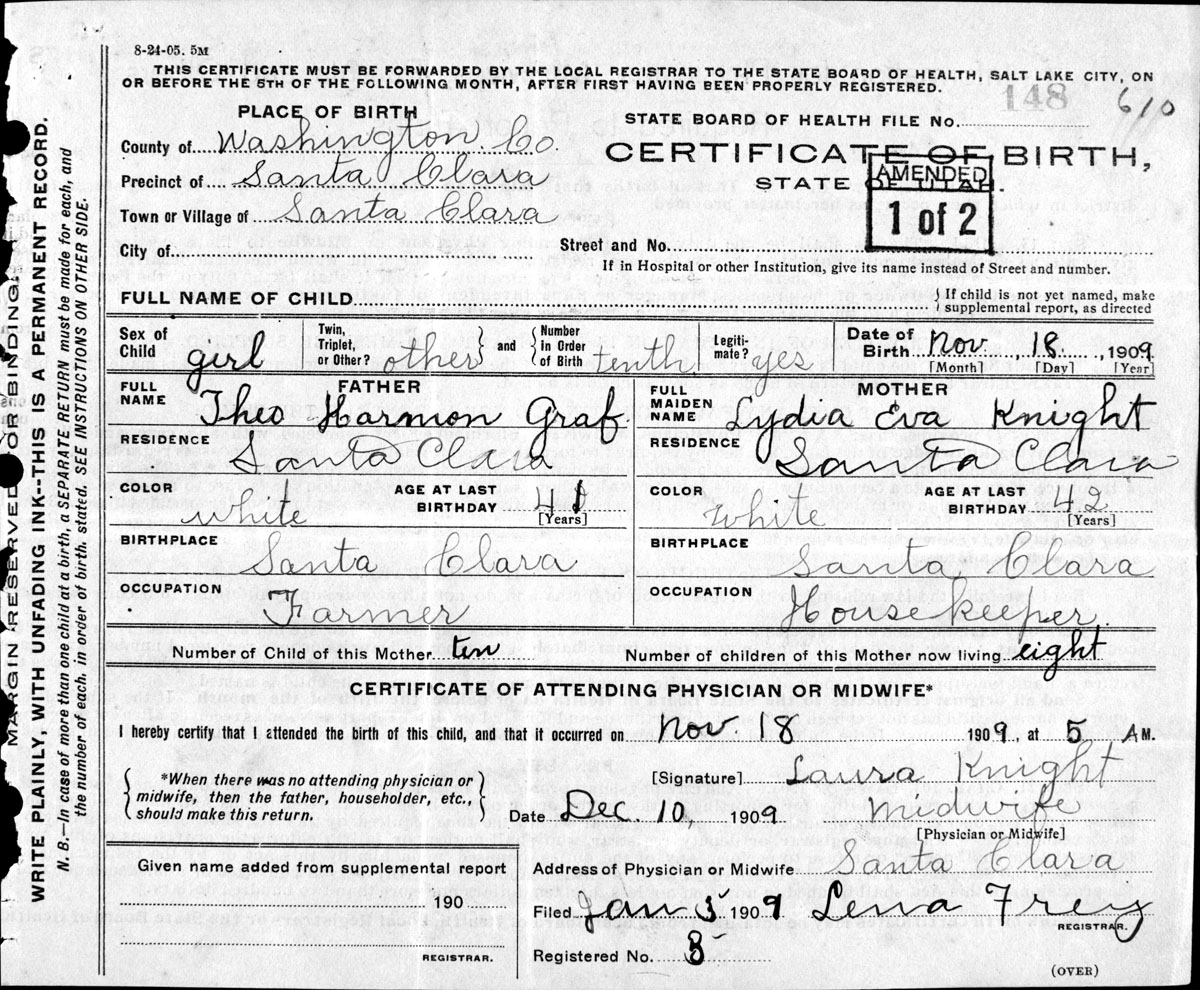 8-24-05. 5M
THIS CERTIFICATE MUST BE FORWARDED BY THE LOCAL REGISTRAR TO THE STATE BOARD OF HEALTH, SALT LAKE CITY, ON
OR BEFORE THE 5TH OF THE FOLLOWING MONTH, AFTER FIRST HAVING BEEN PROPERLY REGISTERED.
148
610
PLACE OF BIRTH
STATE BOARD OF HEALTH FILE No.
County of Washington Co.
CERTIFICATE OF BIRTH,
Precinct of Santa Clara
STATE OF UTAH.
AMENDED
1 of 2
Town or Village of Santa Clara
City of
Street and No.
If in Hospital or other Institution, give its name instead of Street and number.
FULL NAME OF CHILD
{If child is not yet named, make
supplemental report, as directed
Sex of Child girl
Twin, Triplet, or Other? other } and { Number in Order of Birth tenth
Legitimate? yes
Date of Birth Nov , 18 , 1909
[Month] [Day] [Year]
FATHER
FULL NAME Theo Harmon Graf
MOTHER
FULL MAIDEN NAME Lydia Eva Knight
RESIDENCE Santa Clara
RESIDENCE Santa Clara
COLOR White
AGE AT LAST BIRTHDAY 41
[Years]
COLOR White
AGE AT LAST BIRTHDAY 42
[Years]
BIRTHPLACE Santa Clara
BIRTHPLACE Santa Clara
OCCUPATION Farmer
OCCUPATION Housekeeper
Number of Child of this Mother ten
Number of children of this Mother now living eight
CERTIFICATE OF ATTENDING PHYSICIAN OR MIDWIFE*
I hereby certify that I attended the birth of this child, and that it occurred on Nov. 18 1909, at 5 A M.
{*When there was no attending physician or
midwife, then the father, householder, etc.,
should make this return.}
[Signature] Laura Knight
Date Dec. 10, 1909 Midwife
[Physician or Midwife]
Given name added from supplemental report
190
REGISTRAR.
Address of Physician or Midwife Santa Clara
Filed Jan 5 1909 Lena Frey
REGISTRAR.
Registered No. 8
(OVER)
MARGIN RESERVED FOR BINDING.
WRITE PLAINLY, WITH UNFADING INK--THIS IS A PERMANENT RECORD.
N. B.—In case of more than one child at a birth, a SEPARATE RETURN must be made for each, and
the number of each, in order of birth, stated. SEE INSTRUCTIONS ON OTHER SIDE.